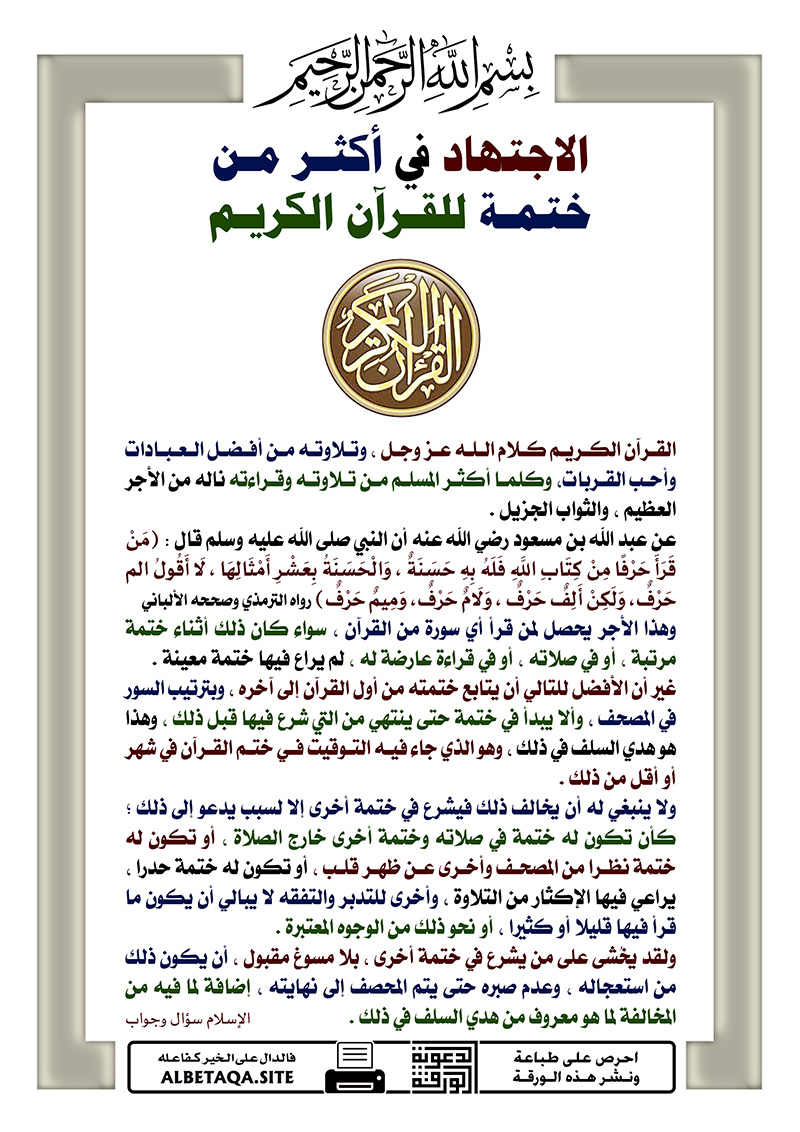 بسم الله الرحمن الرحيم
الاجتهاد في أكثر من
ختمة للقرآن الكريم
القرآن الكريم
القرآن الكريم كلام الله عز وجل ، وتلاوته من أفضل العبادات
وأحب القربات، وكلما أكثر المسلم من تلاوته وقراءته ناله من الأجر
العظيم ، والثواب الجزيل .
عن عبد الله بن مسعود رضي الله عنه أن النبي صلى الله عليه وسلم قال : (مَنْ
قَرَأَ حَرْفًا مِنْ كِتَابِ اللَّهِ فَلَهُ بِهِ حَسَنَةٌ ، وَالْحَسَنَةُ بِعَشْرِ أَمْثَالِهَا ، لَا أَقُولُ الم
حَرْفٌ، وَلَكِنْ أَلِفٌ حَرْفٌ ، وَلَامٌ حَرْفٌ، وَمِيمٌ حَرْفٌ) رواه الترمذي وصححه الألباني
وهذا الأجر يحصل لمن قرأ أي سورة من القرآن ، سواء كان ذلك أثناء ختمة
مرتبة ، أو في صلاته ، أو في قراءة عارضة له ، لم يراع فيها ختمة معينة .
غير أن الأفضل للتالي أن يتابع ختمته من أول القرآن إلى آخره ، وبترتيب السور
في المصحف ، وألا يبدأ في ختمة حتى ينتهي من التي شرع فيها قبل ذلك ، وهذا
هو هدي السلف في ذلك ، وهو الذي جاء فيه التوقيت في ختم القرآن في شهر
أو أقل من ذلك .
ولا ينبغي له أن يخالف ذلك فيشرع في ختمة أخرى إلا لسبب يدعو إلى ذلك ؛
كأن تكون له ختمة في صلاته وختمة أخرى خارج الصلاة ، أو تكون له
ختمة نظرا من المصحف وأخرى عن ظهر قلب ، أو تكون له ختمة حدرا ،
يراعي فيها الإكثار من التلاوة ، وأخرى للتدبر والتفقه لا يبالي أن يكون ما
قرأ فيها قليلا أو كثيرا ، أو نحو ذلك من الوجوه المعتبرة .
ولقد يخْشى على من يشرع في ختمة أخرى ، بلا مسوغ مقبول ، أن يكون ذلك
من استعجاله ، وعدم صبره حتى يتم المحصف إلى نهايته ، إضافة لما فيه من
المخالفة لما هو معروف من هدي السلف في ذلك . الإسلام سؤال وجواب
احرص على طباعة
ونشر هذه الورقة
الورقة الدعوية
فالدال على الخير كفاعله
ALBETAQA.SITE